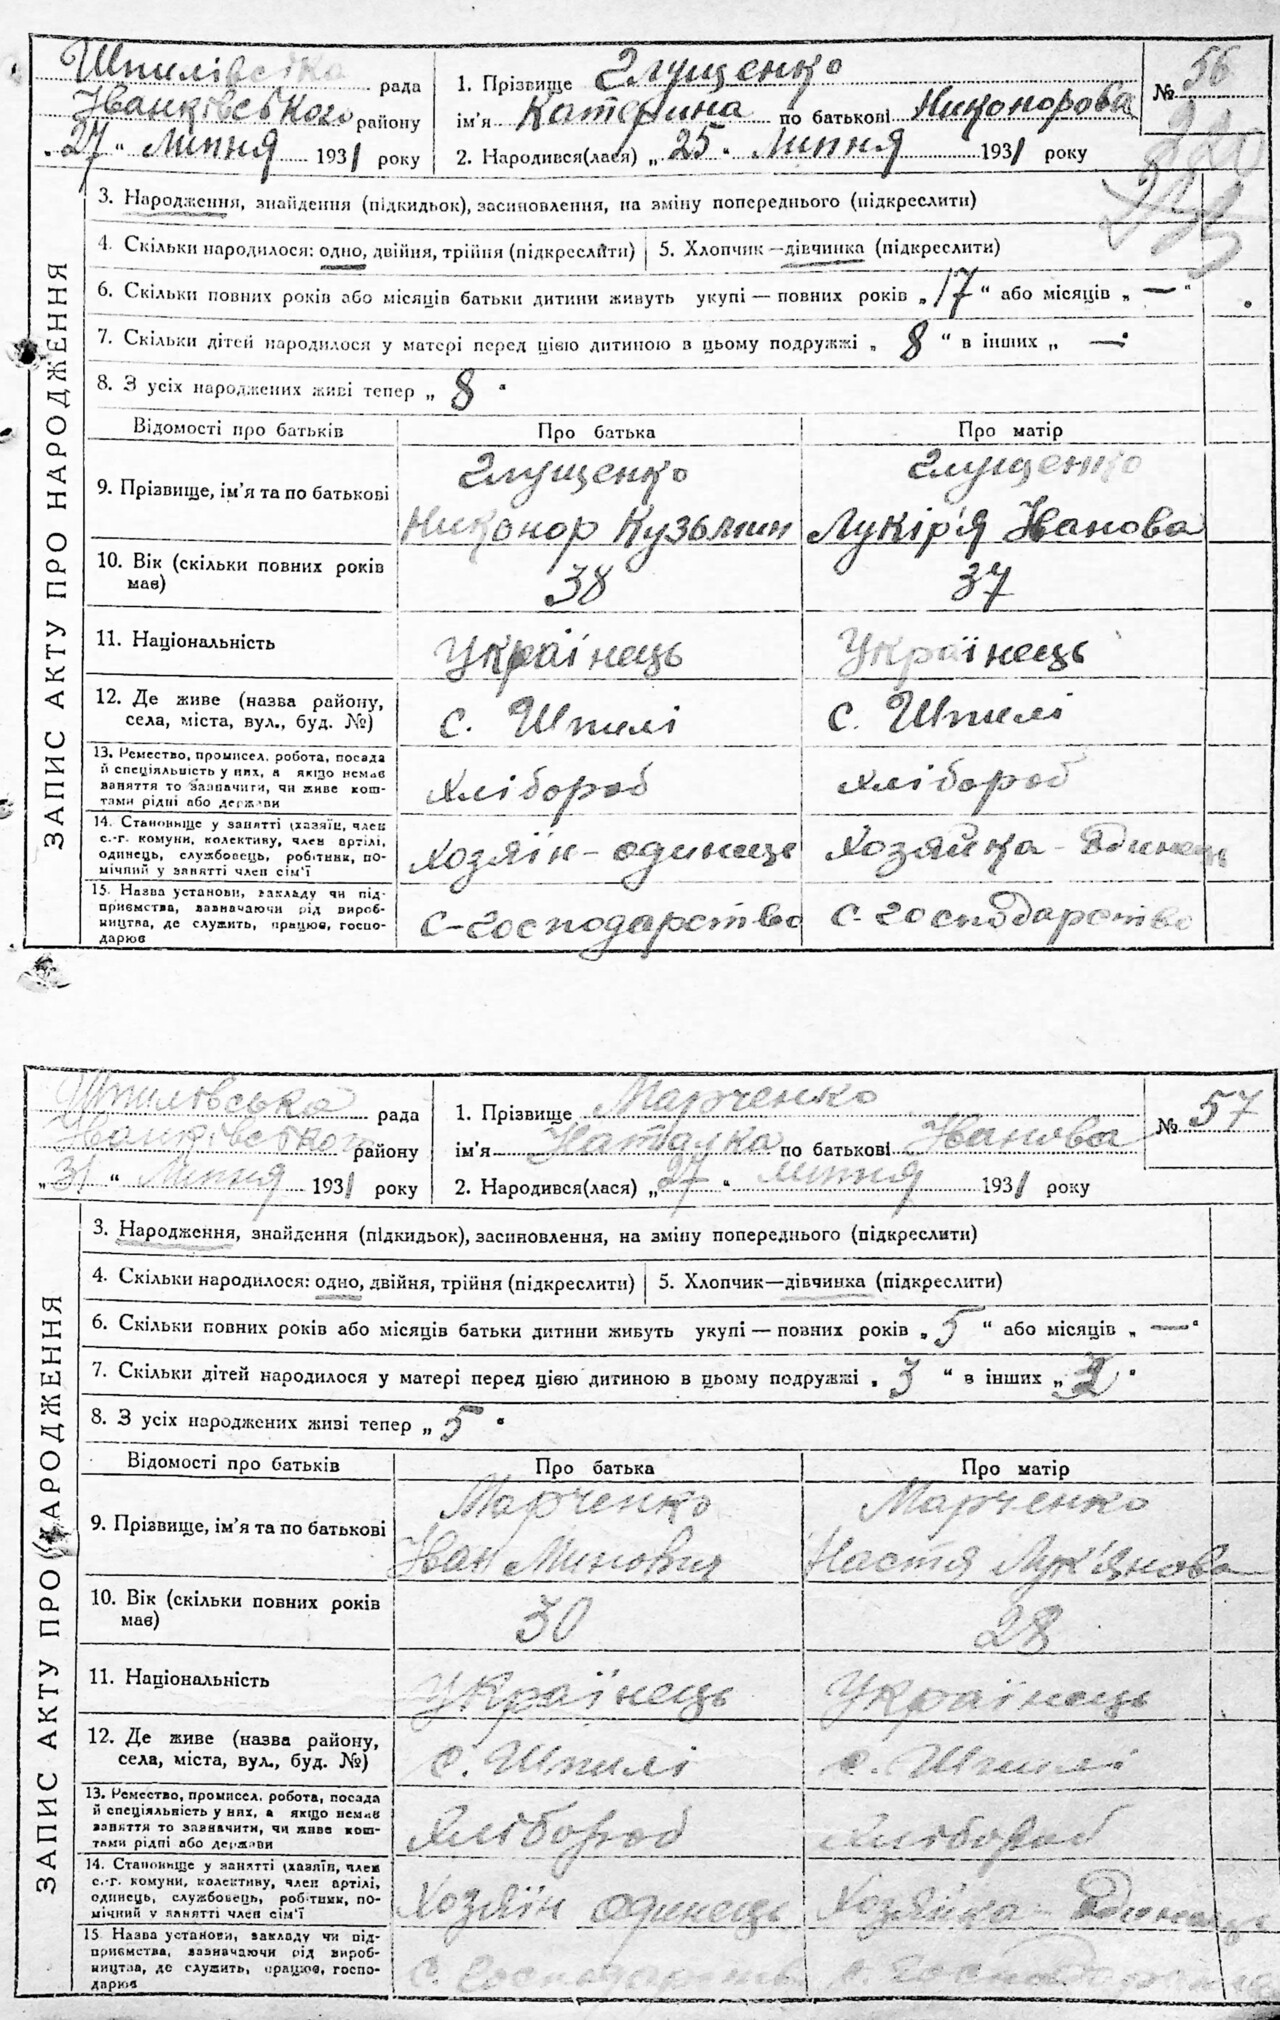 Шпилівська рада
Іванківського району
„27“ Липня 1931 року
1. Прізвище Глущенко
ім'я Катерина по батькові Никонорова
2. Народився(лася) „25“ Липня 1931 року
№ 56
3. Народження, знайдення (підкидьок), засиновлення, на зміну попереднього (підкреслити)
4. Скільки народилося: одно, двійня, трійня (підкреслити) 5. Хлопчик—дівчинка (підкреслити)
6. Скільки повних років або місяців батьки дитини живуть укупі — повних років „17“ або місяців „—“
7. Скільки дітей народилося у матері перед цією дитиною в цьому подружжі „8“ в інших „—“
8. З усіх народжених живі тепер „8“
ЗАПИС АКТУ ПРО НАРОДЖЕННЯ
Відомості про батьків Про батька Про матір
9. Прізвище, ім'я та по батькові
Глущенко
Никонор Кузьмин
Глущенко
Лукір'я Іванова
10. Вік (скільки повних років
має)
38 37
11. Національність Українець Українець
12. Де живе (назва району,
села, міста, вул., буд. №)
с. Шпилі с. Шпилі
13. Ремество, промисел, робота, посада
й спеціяльність у них, а якщо немає
заняття то зазначити, чи живе кош-
тами рідні або держави
Хлібороб Хлібороб
14. Становище у занятті (хазяїн, член
с.-г. комуни, колективу, член артілі,
одинець, службовець, робітник, по-
мічний у занятті член сім'ї
Хозяїн-одинець Хозяйка-одинець
15. Назва установи, закладу чи під-
приємства, зазначаючи рід вироб-
ництва, де служить, працює, госпо-
дарює
С-господарство С-господарство
Шпилівська рада
Іванківського району
„31“ Липня 1931 року
1. Прізвище Марченко
ім'я Наталка по батькові Іванова
2. Народився(лася) „27“ липня 1931 року
№ 57
3. Народження, знайдення (підкидьок), засиновлення, на зміну попереднього (підкреслити)
4. Скільки народилося: одно, двійня, трійня (підкреслити) 5. Хлопчик—дівчинка (підкреслити)
6. Скільки повних років або місяців батьки дитини живуть укупі — повних років „5“ або місяців „—“
7. Скільки дітей народилося у матері перед цією дитиною в цьому подружжі „3“ в інших „2“
8. З усіх народжених живі тепер „5“
ЗАПИС АКТУ ПРО НАРОДЖЕННЯ
Відомості про батьків Про батька Про матір
9. Прізвище, ім'я та по батькові
Марченко
Іван
Марченко
Настя Лук'янова
10. Вік (скільки повних років
має)
30 28
11. Національність Українець Українець
12. Де живе (назва району,
села, міста, вул., буд. №)
с. Шпилі с. Шпилі
13. Ремество, промисел, робота, посада
й спеціяльність у них, а якщо немає
заняття то зазначити, чи живе кош-
тами рідні або держави
Хлібороб Хлібороб
14. Становище у занятті (хазяїн, член
с.-г. комуни, колективу, член артілі,
одинець, службовець, робітник, по-
мічний у занятті член сім'ї
Хозяїн одинець Хозяйка-одинець
15. Назва установи, закладу чи під-
приємства, зазначаючи рід вироб-
ництва, де служить, працює, госпо-
дарює